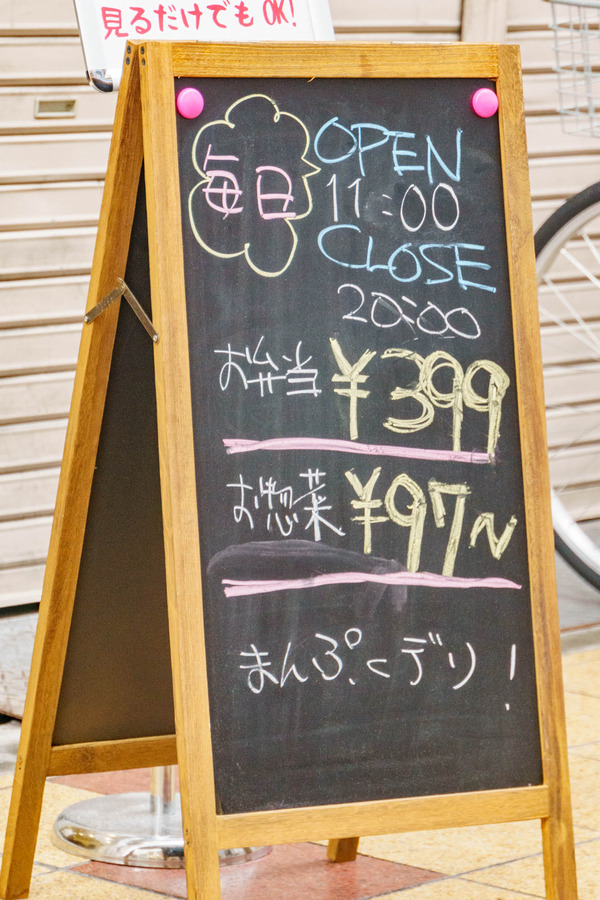 見るだけでもOK!
毎日
OPEN
11:00
CLOSE
20:00
お弁当 ¥399
お惣菜 ¥97~
まんぷくデリ!